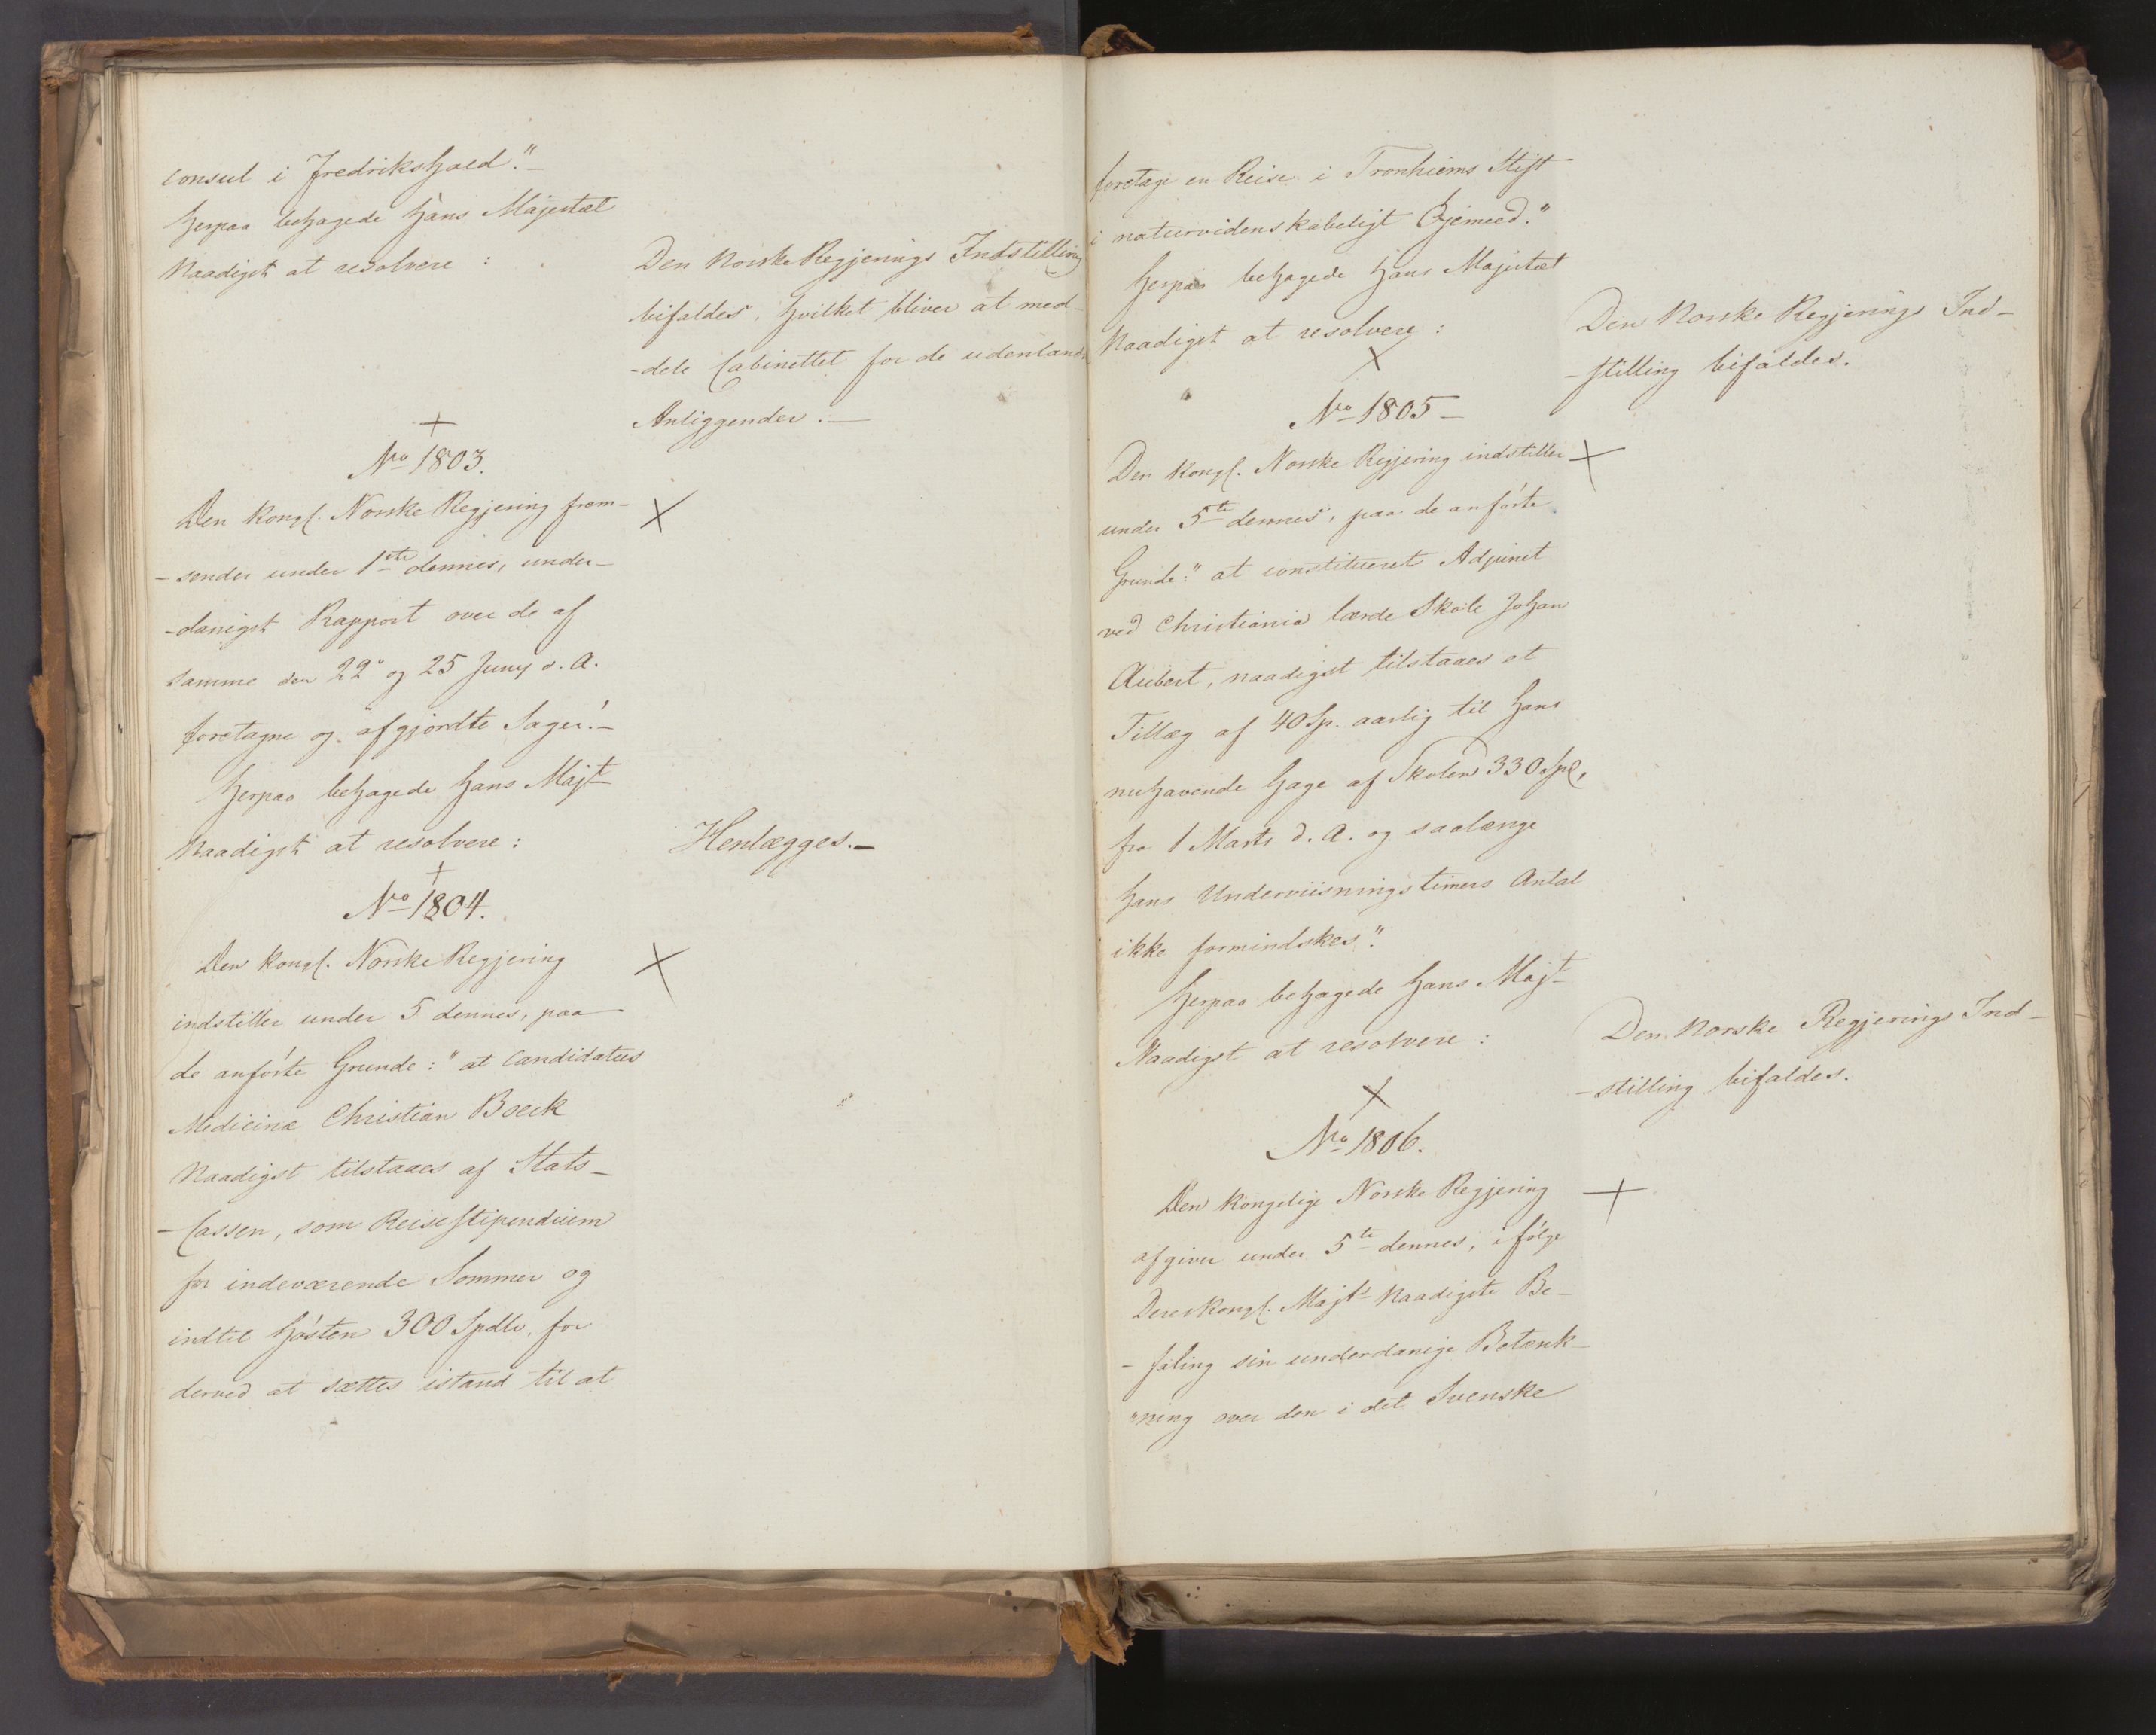 consul i Fredrikshald."-
Herpaa behagede Hans Majestæt
Naadigst at resolvere :
Den Norske Regjerings Indstilling
bifaldes, hvilket bliver at med-
-dele Cabinettet for de udenlands
Anliggender.-
+
No 1803.
Den Kongl. Norske Regjering frem-
X
-sender under 1ste dennes, under-
-danigst Rapport over de af
samme den 22 og 25 Juny d. A.
foretagne og afgjordte Sager.-
Herpaa behagede Hans Majt
Naadigst at resolvere :
Henlægges.-
+
No 1804.
Den Kongl. Norske Regjering
X
indstiller under 5 dennes, paa
de anførte Grunde : "at Candidatus
Medicinæ Christian Boeck
Naadigst tilstaaes af Stats-
-Cassen, som Reisestipendium
for indeværende Sommer og
indtil Høsten 300 Spdlr, for
derved at sættes istand til at
foretage en Reise i Tronhiems Stift
i naturvidenskabeligt Øjemeed."
Herpaa behagede Hans Majestæt
Naadigst at resolvere :
Den Norske Regjerings Ind-
-stilling bifaldes.
X
No 1805-
Den Kongl. Norske Regjering indstiller
X
under 5te dennes, paa de anførte
Grunde: "at constitueret Adjunct
ved Christiania lærde Skole Johan
Aubert, naadigst tilstaaes et
Tillæg af 40 Sp. aarlig til hans
nuhavende Gage af Skolen 330 Spd,
fra 1 Marts d. A. og saalænge
hans Underviisningstimers Antal
ikke formindskes".
Herpaa behagede Hans Majt
Naadigst at resolvere :
Den Norske Regjerings Ind-
-stilling bifaldes.
X
No 1806.
Den Kongelige Norske Regjering
+
afgiver under 5te dennes, i følge
Deres Kongl. Majts Naadigste Be-
-faling sin underdanige Betænk-
"ning over den i det Svenske